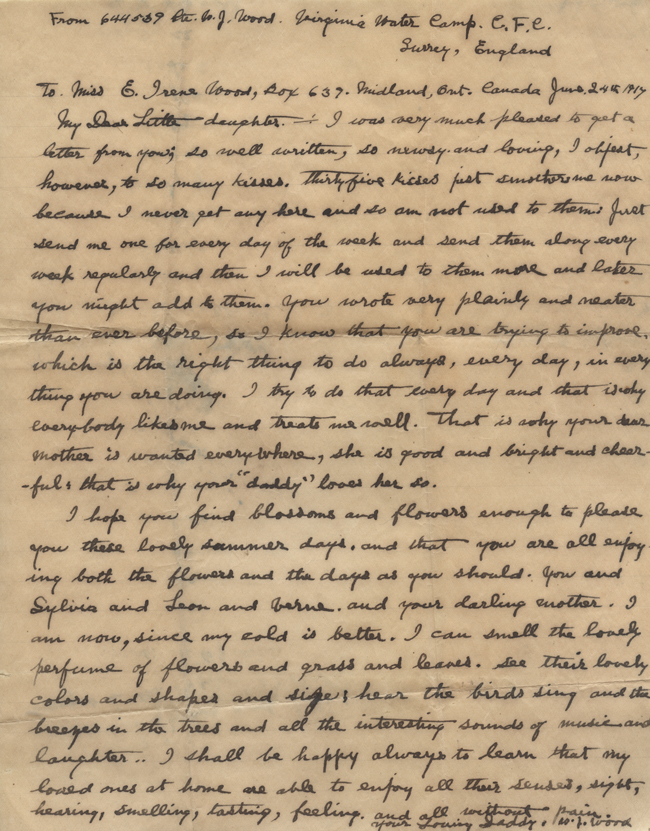 From 644559 Pte. W. J. Wood. Virginia Water Camp. C.F.C.
Surrey, England
To. Miss E. Irene Wood, Box 637. Midland, Ont. Canada June. 24th 1917
My Dear Little daughter. — I was very much pleased to get a
letter from you; so well written, so newsy and loving, I object,
however, to so many kisses. Thirty five kisses just smother me now
because I never get any here and so am not used to them. Just
send me one for every day of the week and send them along every
week regularly and then I will be used to them more and later
you might add to them. You wrote very plainly and neater
than ever before, so I know that you are trying to improve.
which is the right thing to do always, every day, in every
thing you are doing. I try to do that every day and that is why
everybody likes me and treats me well. That is why your dear
mother is wanted everywhere, she is good and bright and cheer-
-ful; that is why your "daddy" loves her so.
I hope you find blossoms and flowers enough to please
you these lovely summer days. and that you are all enjoy
ing both the flowers and the days as you should. You and
Sylvia and Leon and Verne. and your darling mother. I
am now, since my cold is better. I can smell the lovely
perfume of flowers and grass and leaves. see their lovely
colors and shapes and size; hear the birds sing and the
breezes in the trees and all the interesting sounds of music and
laughter.. I shall be happy always to learn that my
loved ones at home are able to enjoy all their senses, sight,
hearing, smelling, tasting, feeling. and all without pain.
your Loving Daddy. W. J. Wood